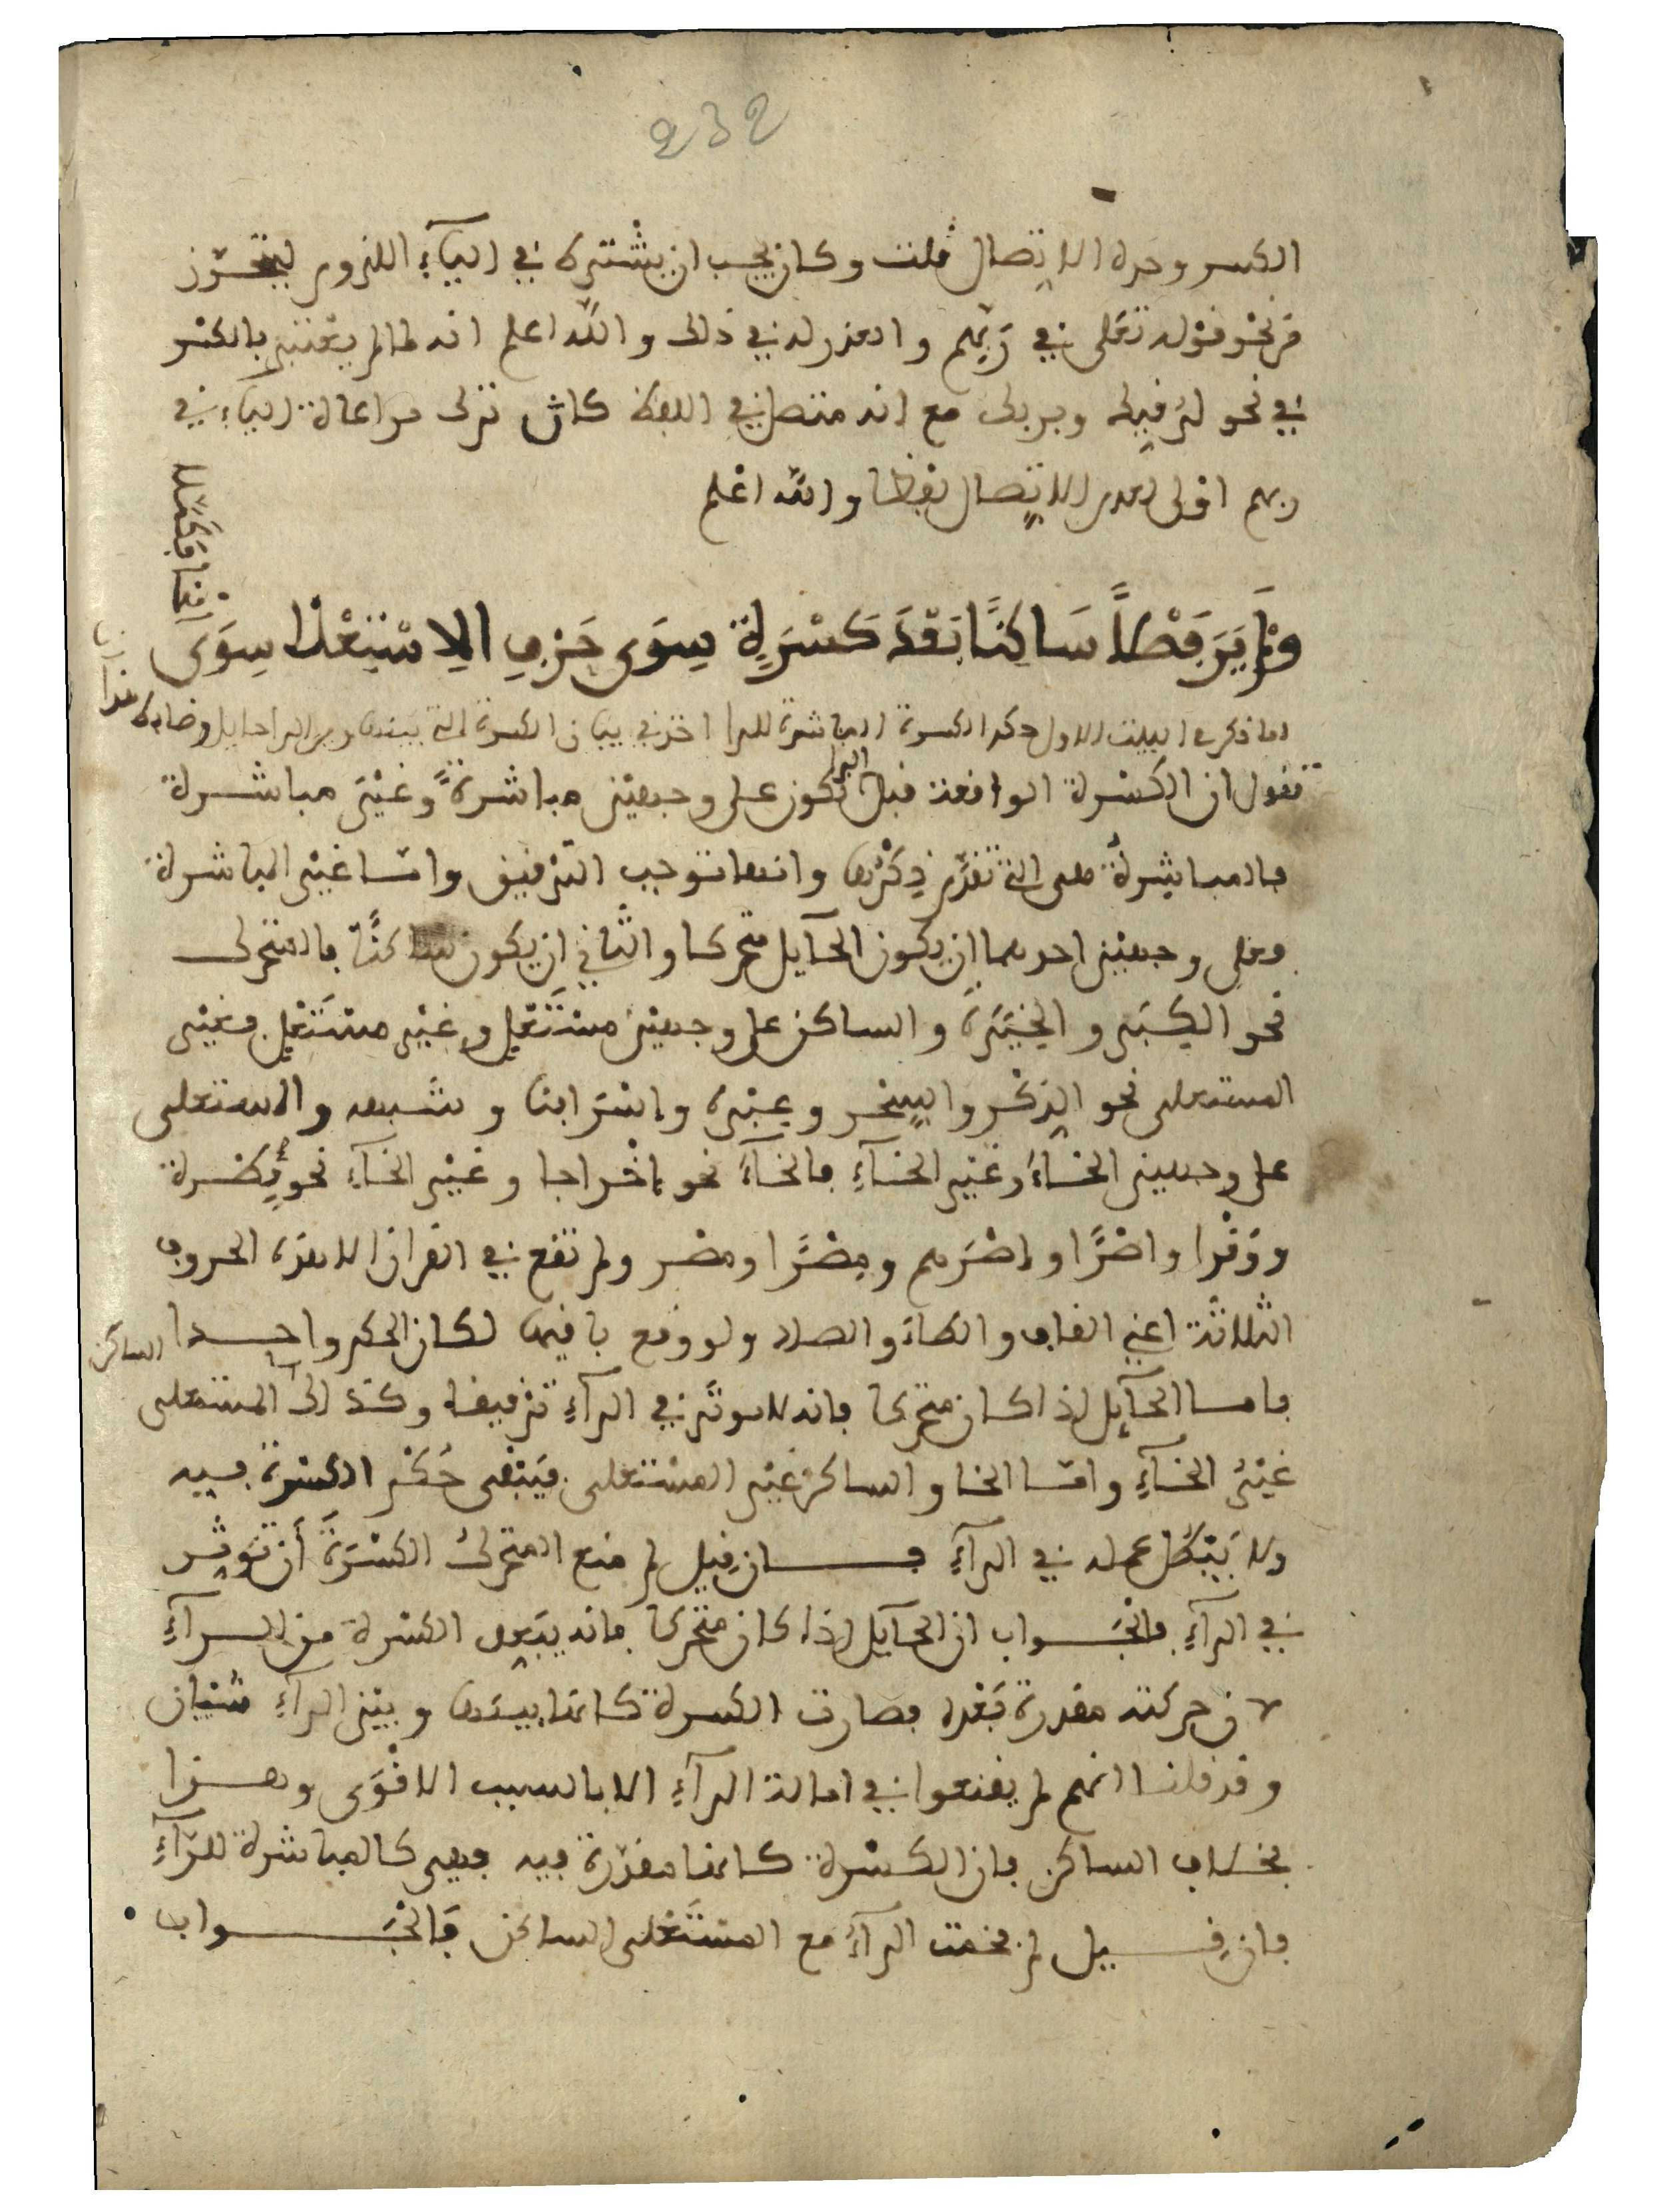 232
الكسر وحده الاتصال قلت وكان يجب ان يشترط في الياء اللزوم ليتحرز
من نحو قوله تعلى في ربهم والعذر له في ذلك والله اعلم انه لما لم يعتبر بالكسر
في نحو لرقيك وبربك مع انه متصل في اللفظ كان ترك مراعاة الياء في
ربهم اولى لعدم الاتصال لفظا والله اعلم
وَلَمْ يَرَ فَصْلاً سَاكِنًا بَعْدَ كَسْرَةٍ سِوَى حَرْفِ الاِسْتِعْلا سِوَى
الخا فكملا
لما ذكر في البيت الاول حكم الكسرة المباشرة للرا اخذ في بيان الكسرة التي بينها وبين الرا حايل وضابط هذا ان
نقول ان الكسرة الواقعة قبل الرا تكون على وجهين مباشرة وغير مباشرة
فالمباشرة هي التي تقدم ذكرها وانها توجب الترقيق وامـا غير المباشرة
فعلى وجهين احدهما ان يكون الحايل متحركا والثاني ان يكون ساكنا فالمتحرك
نحو الكِبَر والخِيَرَة والساكن على وجهين مستعل وغير مستعل فغير
المستعلى نحو الذِّكْر والسِّحر وعِبْرة واسْرَافنا وشبهه والمستعلى
على وجهين الخاء وغير الخاء فالخاء نحو إخْراجا وغير الخاء نحو فِطْرة
ووِقْرا واصْرًا وإصْرَهم ومِصْرًا ومصر ولم تقع في القران الا هذه الحروف
الثلاثة اعني القاف والطاء والصاد ولو وقع باقيها لكان الحكم واحـدا
فامـا الحآيل اذا كان متحركا فانه لا يوثر في الرآء ترقيقا وكذلك المستعلى الساكن
غيْرُ الخآءِ وامّا الخا والساكن غير المستعلى فيبقى حُكْم الكسرة فيـه
ولا يَبْطُل عمله في الرآءِ فــان قيل لم منع المتحركُ الكسْرَةَ أن تؤثر
في الرآءِ فالجـواب ان الحآيل اذا كان متحركا فانه يبعد الكسرة من الـرآءِ
لان حركته مقدرة بَعْده فصارت الكسرة كانما بينها وبين الرآءِ شيئان
وقد قلنـا انهم لم يقنعوا في امالة الرآءِ الا بالسبب الاقْوَى وهـذا
بخلاف الساكن فان الكسْرة كانها مقدّرة فيه فهي كالمباشرة للرّآءِ
فان قـيل لم فخمت الرآءُ مع المستعلى الساكن فَالجَـواب